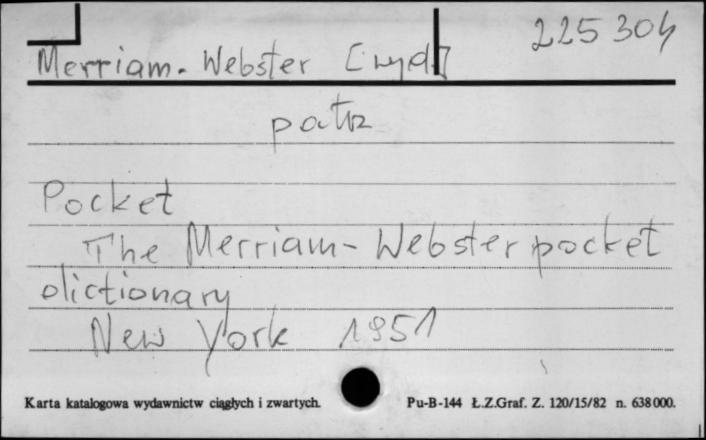 225 304
Merriam-Webster [wyd.]
patrz
Pocket
The Merriam-Webster pocket
dictionary
New York 1951
Karta katalogowa wydawnictw ciągłych i zwartych.
Pu-B-144 Ł.Z.Graf. Z. 120/15/82 n. 638000.